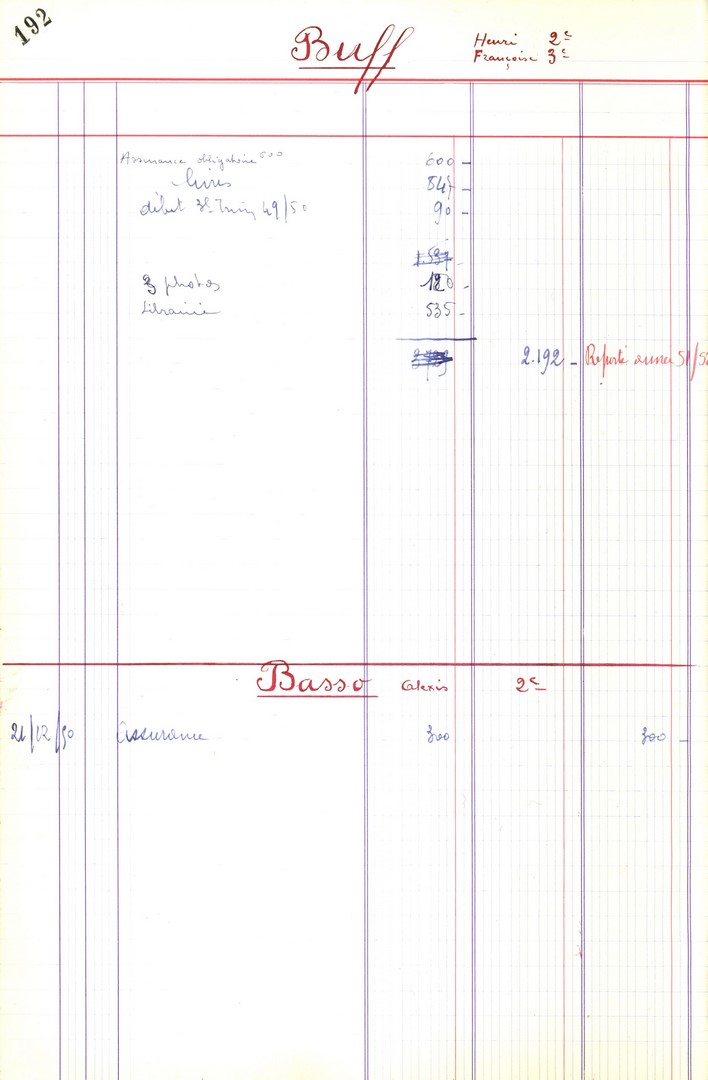 192
Buff Henri 2e
Françoise 3e
Assurance obligatoire 600 600 -
Livres 847 -
début 3e Trim 49/50 90 -
1.537 -
3 photos 120 -
Librairie 535 -
2.192 - Reporté année 51/52
Basso Alexis 2e
21/12/50 Assurance 300 300 -